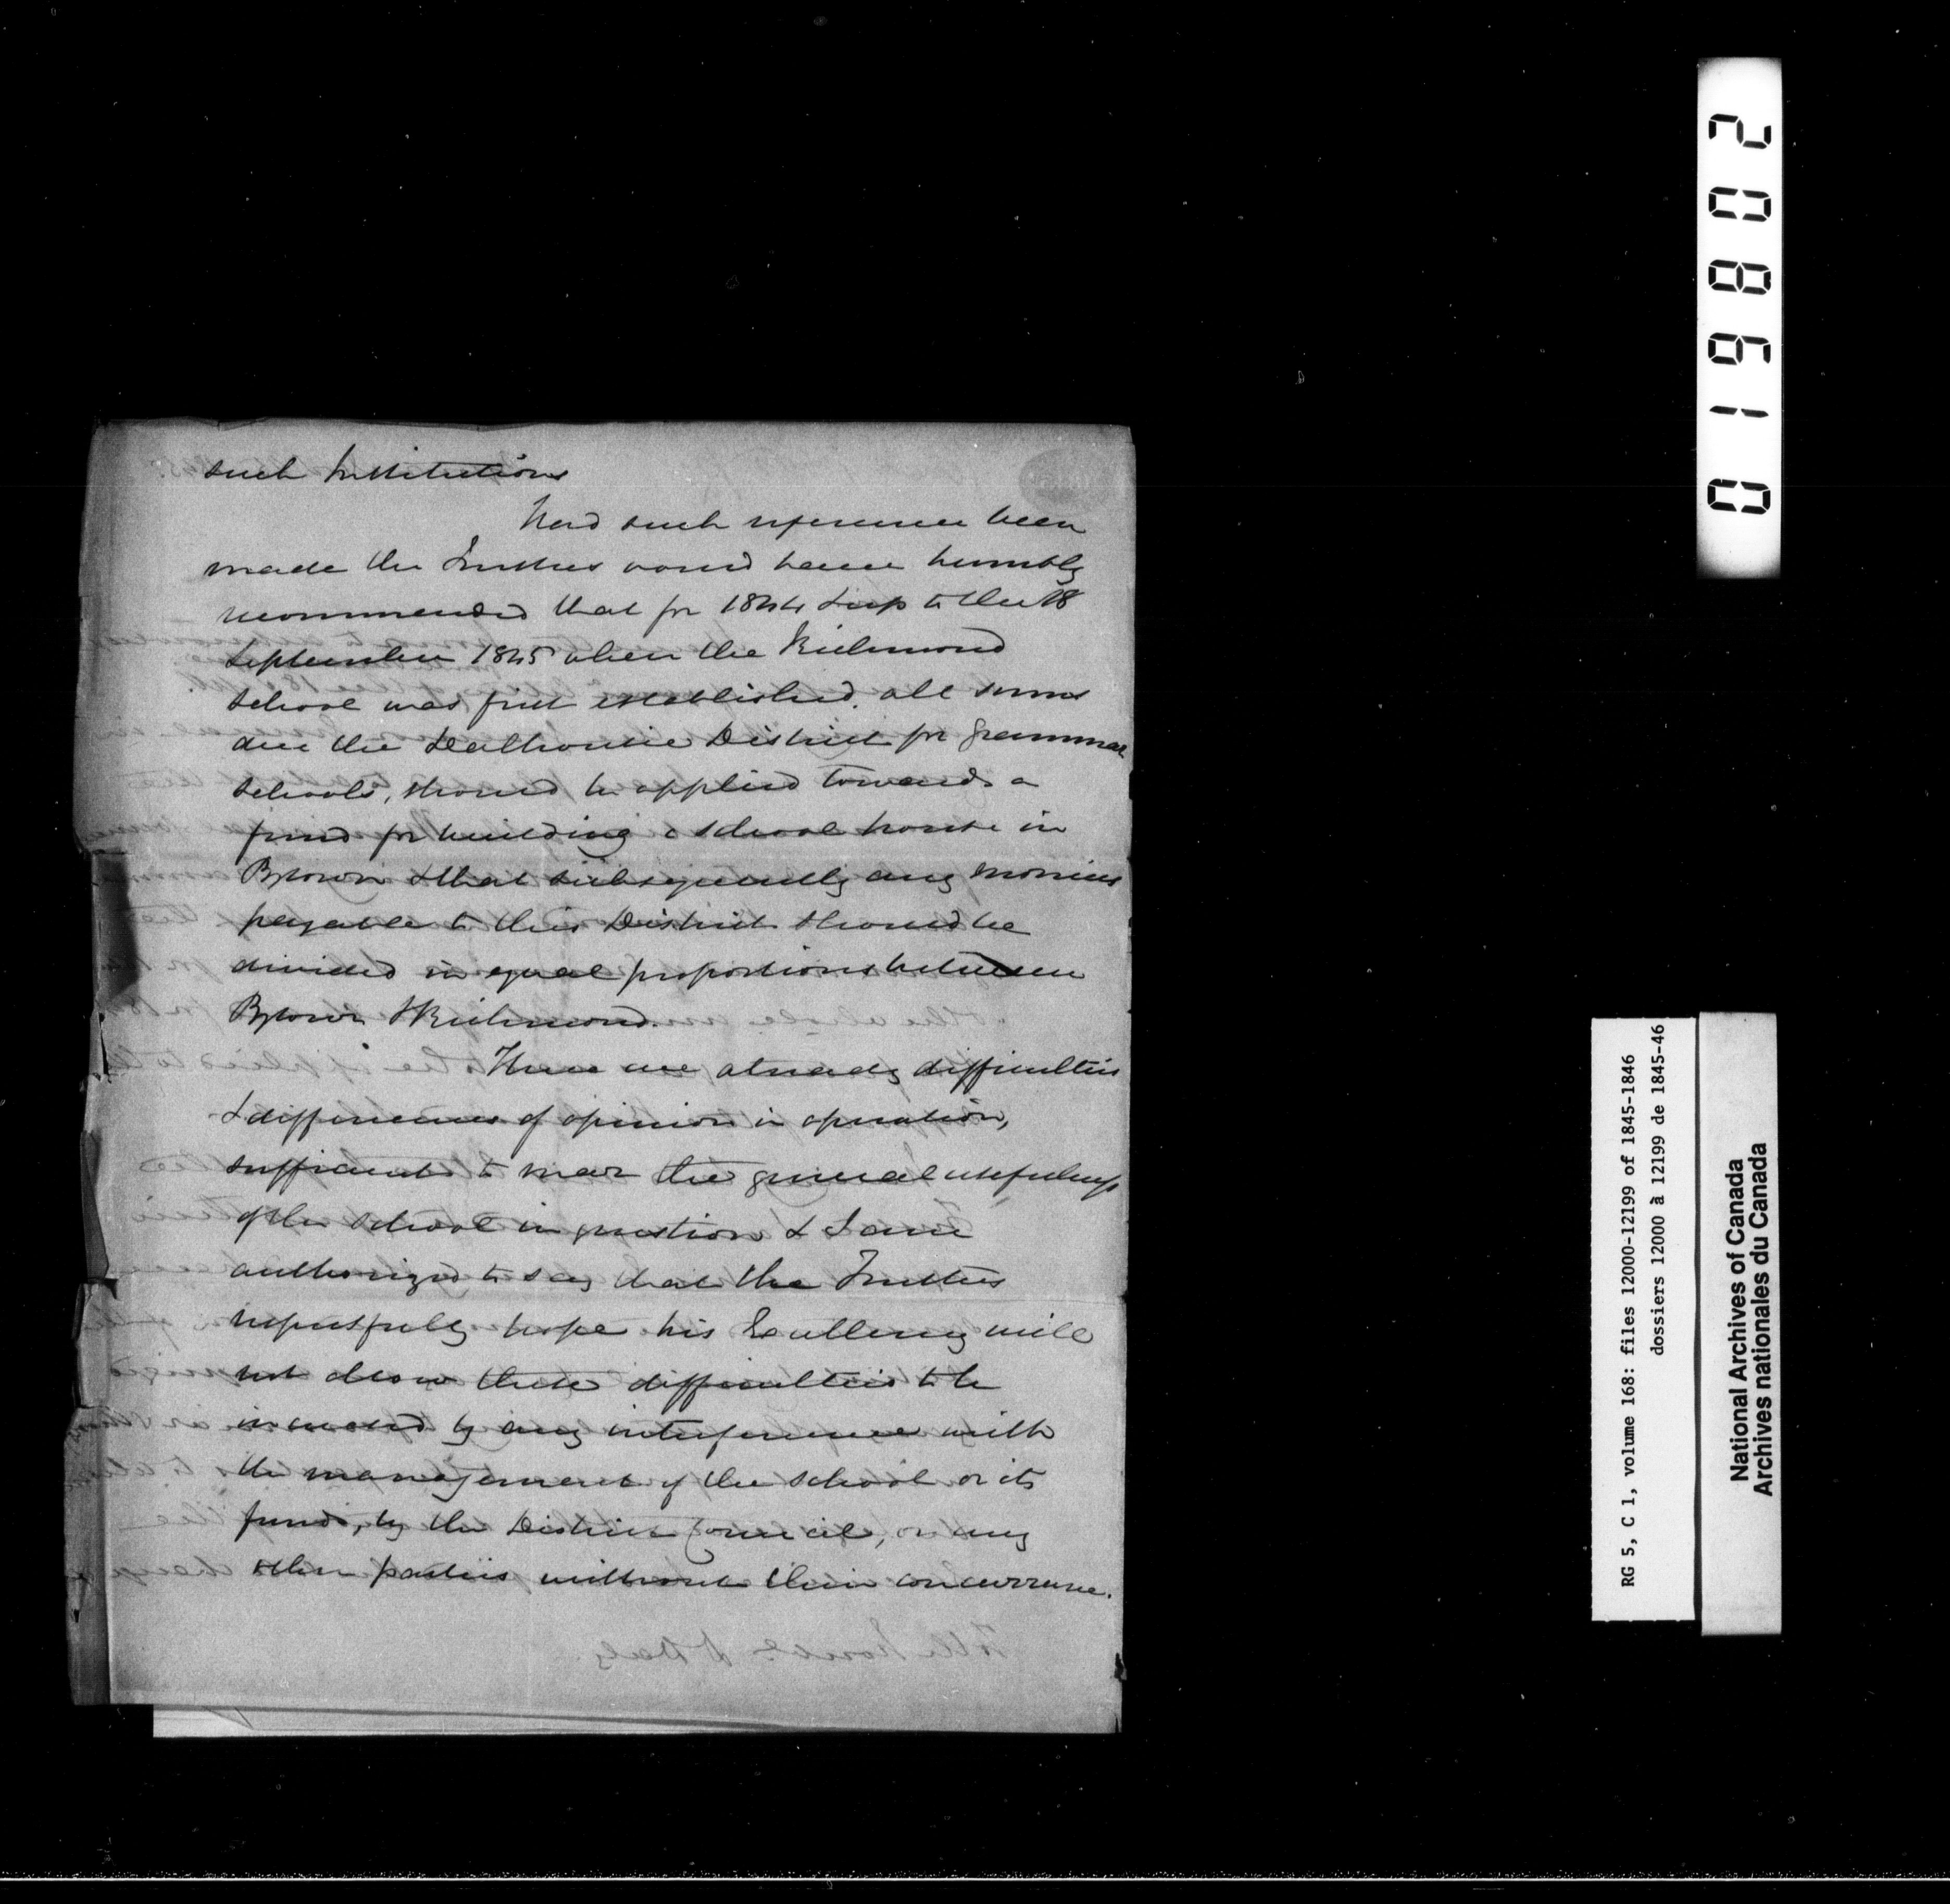 such Institutions
Had such reference been
made the Trustees would have humbly
recommended that for 1844 & up to the 18
September 1845 when the Richmond
School was first established, all sums
due the Dalhousie District for grammar
schools, should be applied towards a
fund for building a school house in
Bytown & that subsequently any monies
payable to this District should be
divided in equal proportions between
Bytown & Richmond.
There are already difficulties
& differences of opinion in operation,
sufficient to mar the general usefulness
of the School in question & I am
authorized to say that the Trustees
respectfully hope his Excellency will
not allow these difficulties to be
increased by any interference with
the management of the School or its
funds, by the District Council, or any
other parties without their concurrence.
019802
RG 5, C 1, volume 168: files 12000-12199 of 1845-1846
dossiers 12000 à 12199 de 1845-46
National Archives of Canada
Archives nationales du Canada